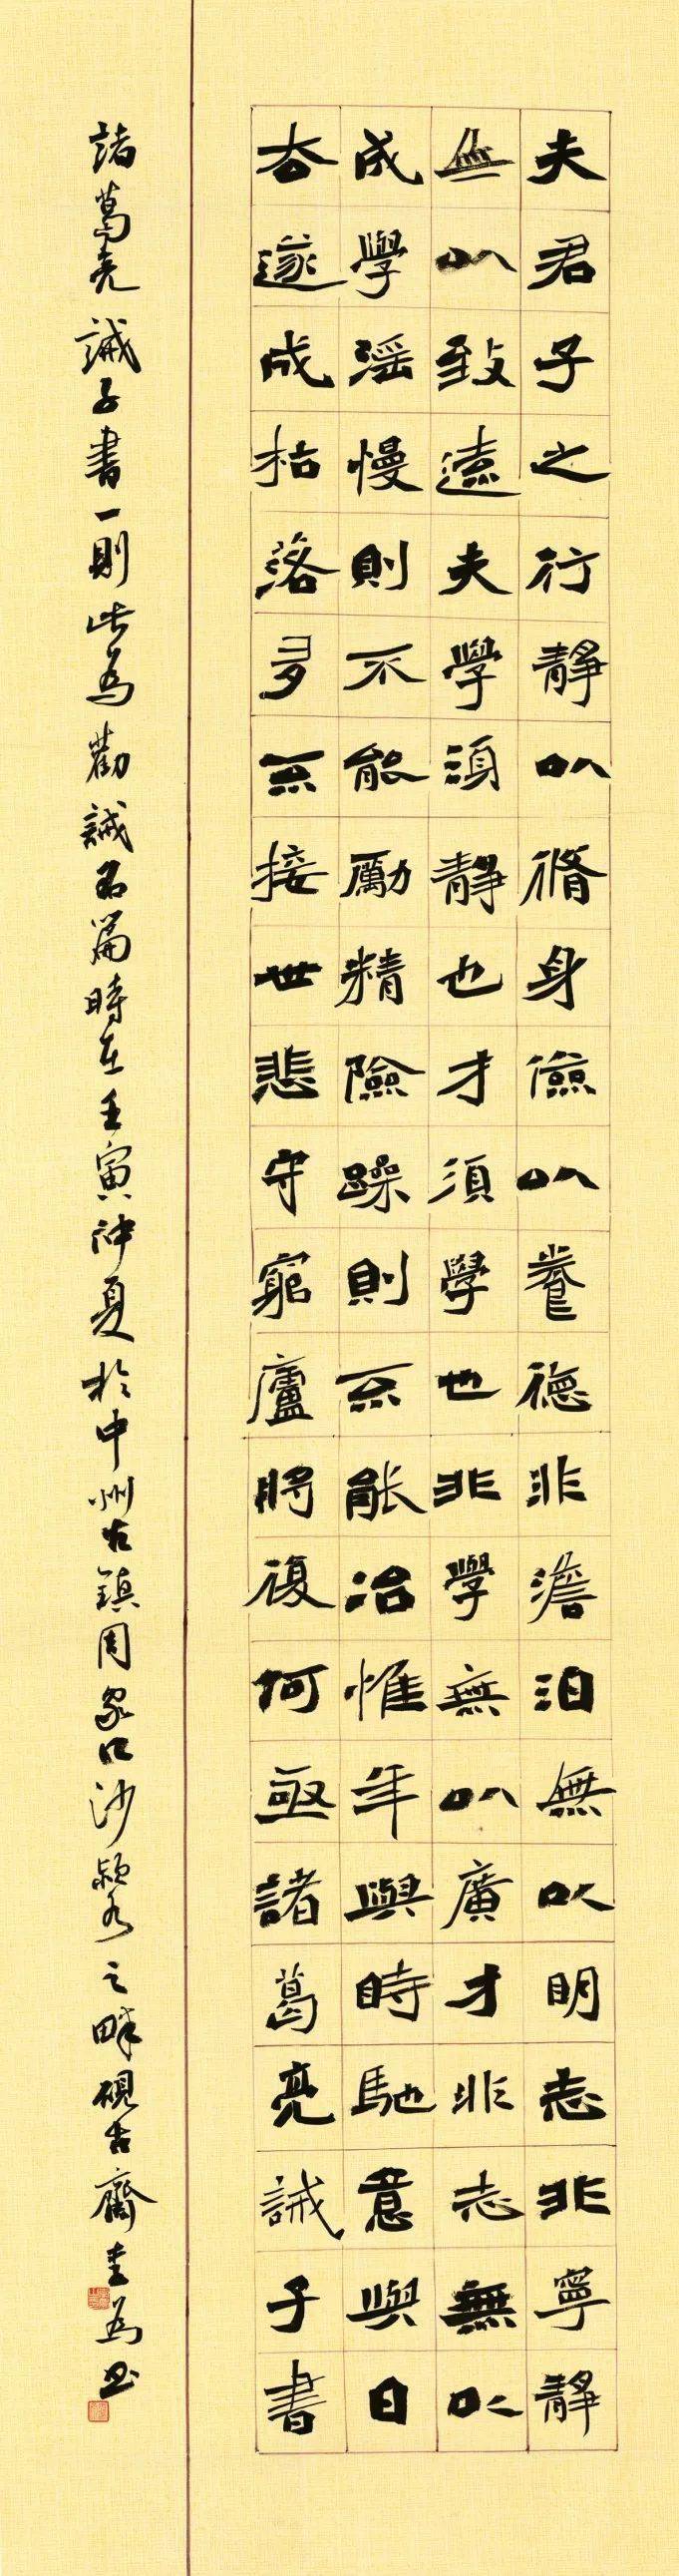 夫君子之行靜以脩身儉以養德非澹泊無以明志非寧靜
無以致遠夫學須靜也才須學也非學無以廣才非志無以
成學滛慢則不能勵精險躁則不能冶惟年與時馳意與日
去遂成枯落多不接世悲守窮廬將復何亟諸葛亮誡子書
諸葛亮誡子書一則此為勸誡名篇時在壬寅仲夏於中州古鎮周家口沙潁水之畔硯古齋為书